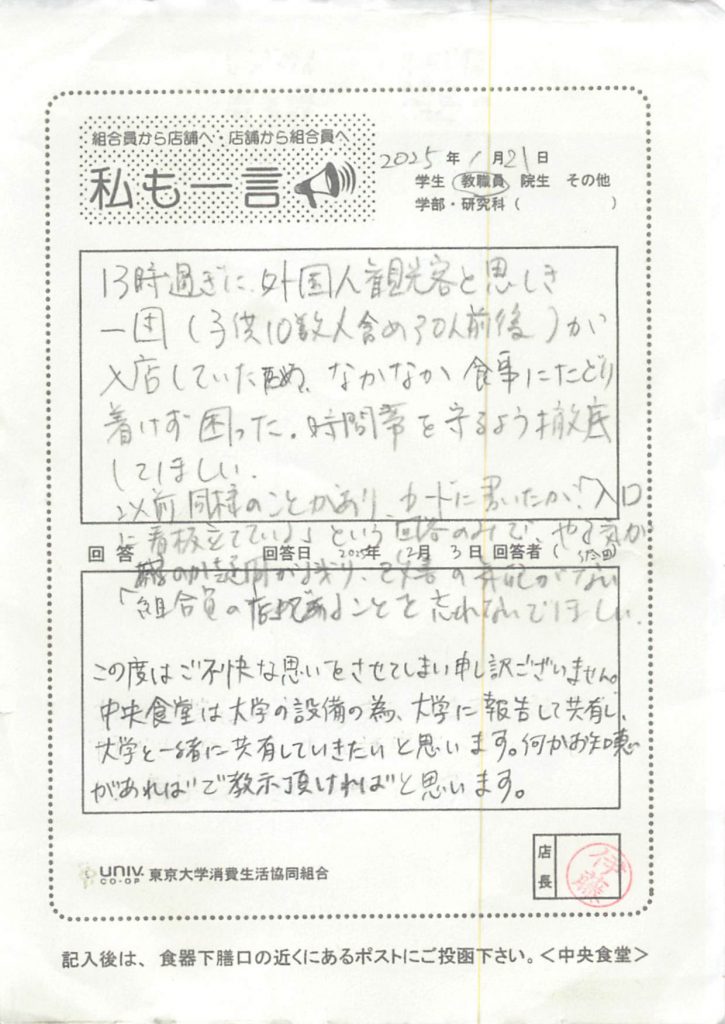 組合員から店舗へ・店舗から組合員へ
私も一言
2025年1月21日
学生 教職員 院生 その他
学部・研究科( )
13時過ぎに、外国人観光客と思しき
一団(子供10数人含め30人前後)が
入店していたため、なかなか食事にたどり
着けず困った。時間帯を守るよう徹底
してほしい。
以前同様のことがあり、カードに書いたが、「入口
に看板立てている」という回答のみで、やる気が
あるのか疑問が残り、改善の気配がない
「組合員の であることを忘れないでほしい。
回答 回答日 2025年12月3日 回答者(
この度はご不快な思いをさせてしまい申し訳ございません。
中央食堂は大学の設備の為、大学に報告して共有し、
大学と一緒に共有していきたいと思います。何かお知恵
があればご教示頂ければと思います。
店長
伊藤
UNIV. CO-OP 東京大学消費生活協同組合
記入後は、食器下膳口の近くにあるポストにご投函下さい。<中央食堂>